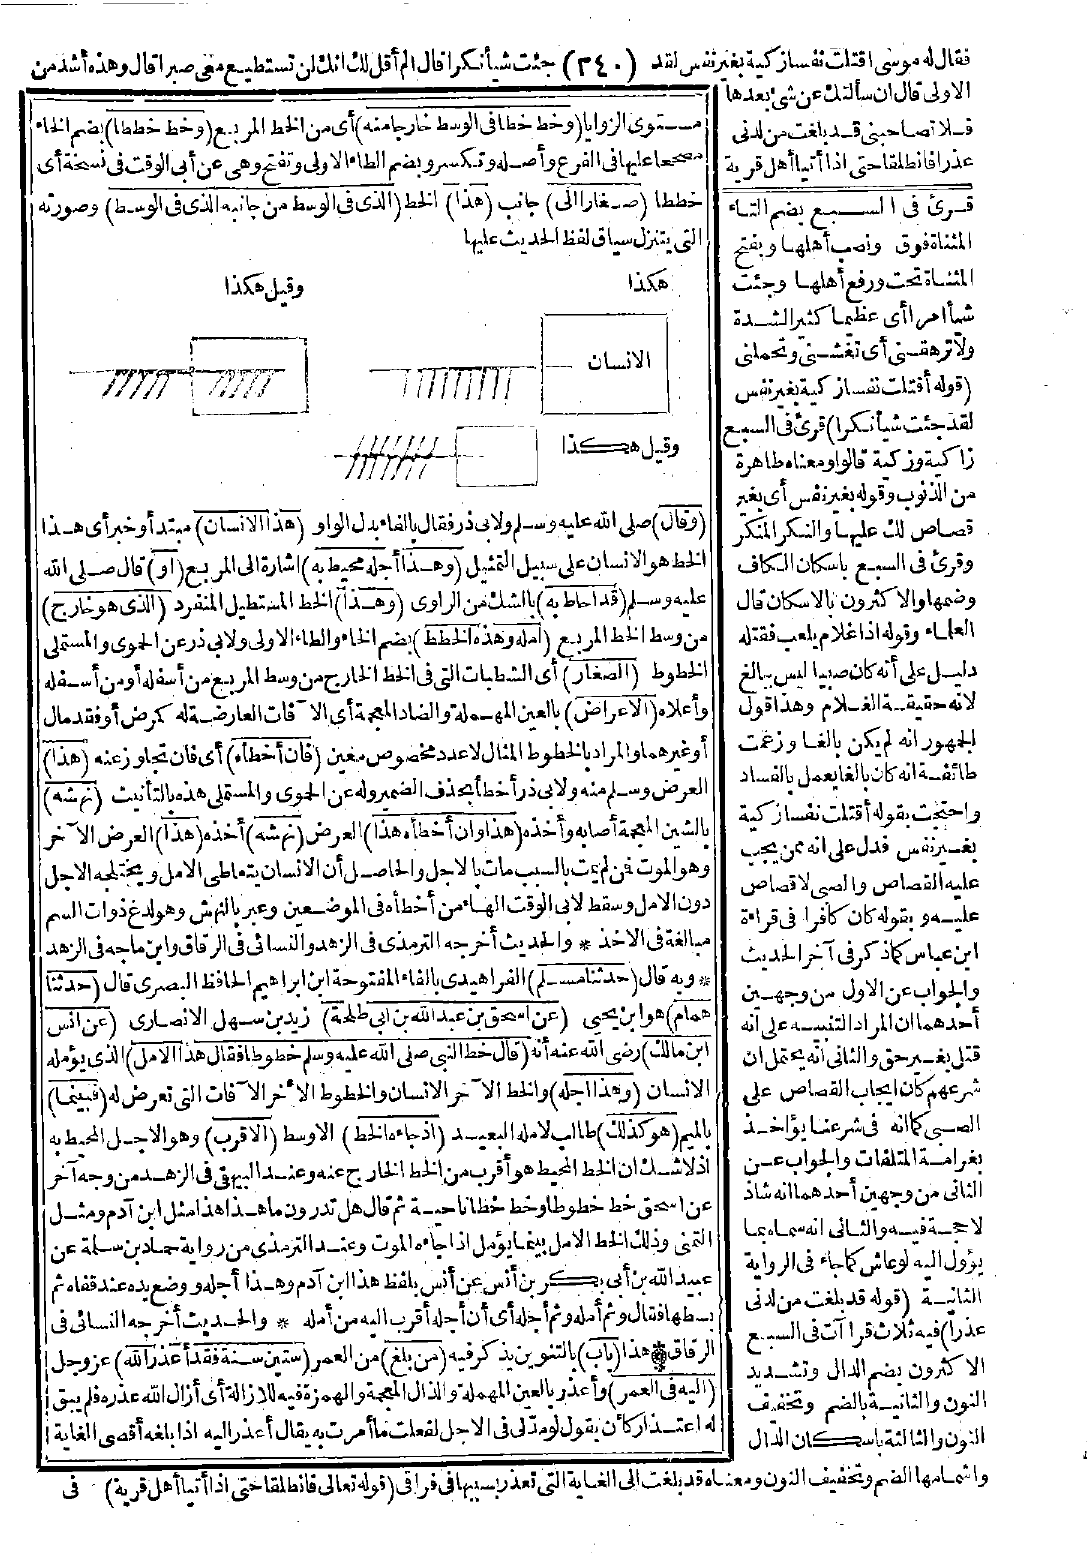 فقال له موسى اقتلت نفسا زكية بغير نفس لقد (٢٤٠) جئت شيأ نكرا قال الم أقل لك انك لن تستطيع معى صبرا قال وهذه أشد من
الاولى قال ان سألتك عن شئ بعدها
فلا تصاحبنى قد بلغت من لدنى
عذرا فانطلقا حتى اذا أتيا أهل قرية
قرئ فى السبع بضم التاء
المثناة فوق ونصب أهلها وبفتح
المثناة تحت ورفع أهلها وجئت
شيأ امرا أى عظيما كثير الشدة
ولا ترهقنى أى تغشنى وتحملنى
(قوله أقتلت نفسا زكية بغير نفس
لقد جئت شيأ نكرا) قرئ فى السبع
زاكية وزكية قالوا ومعناه طاهرة
من الذنوب وقوله بغير نفس أى بغير
قصاص لك عليها والنكر المنكر
وقرئ فى السبع باسكان الكاف
وضمها والاكثرون بالاسكان قال
العلماء وقوله اذا غلام يلعب فقتله
دليل على أنه كان صبيا ليس ببالغ
لانه حقيقة الغلام وهذا قول
الجمهور انه لم يكن بالغا وزعمت
طائفة انه كان بالغا يعمل بالفساد
واحتجت بقوله أقتلت نفسا زكية
بغير نفس فدل على انه ممن يجب
عليه القصاص والصبى لا قصاص
عليه وبقوله كان كافرا فى قراءة
ابن عباس كما ذكر فى آخر الحديث
والجواب عن الاول من وجهين
أحدهما ان المراد التنبيه على أنه
قتل بغير حق والثانى أنه يحتمل ان
شرعهم كان ايجاب القصاص على
الصبى كما انه فى شرعنا يؤاخذ
بغرامة المتلفات والجواب عن
الثانى من وجهين أحدهما انه شاذ
لا حجة فيه والثانى انه سماه بما
يؤول اليه لو عاش كما جاء فى الرواية
الثانية (قوله قد بلغت من لدنى
عذرا) فيه ثلاث قراآت فى السبع
الاكثرون بضم الدال وتشديد
النون والثانية بالضم وتخفيف
النون والثالثة باسكان الدال
واشمامها الضم وتخفيف النون ومعناه قد بلغت الى الغاية التى تعذر بسببها فى فراقى (قوله تعالى فانطلقا حتى اذا أتيا أهل قرية) فى
مستوى الزوايا (وخط خطا فى الوسط خارجا منه) أى من الخط المربع (وخط خططا) بضم الخاء
مصححا عليها فى الفرع وأصله وتكسر وبضم الطاء الاولى وتفتح وهى عن أبى الوقت فى نسخة أى
خططا (صغارا الى) جانب (هذا) الخط (الذى فى الوسط من جانبه الذى فى الوسط) وصورته
التى يتنزل سياق لفظ الحديث عليها
هكذا
وقيل هكذا
الانسان
وقيل هكذا
(وقال) صلى الله عليه وسلم ولابى ذر فقال بالفاء بدل الواو (هذا الانسان) مبتدأ وخبر أى هذا
الخط هو الانسان على سبيل التمثيل (وهذا أجله محيط به) اشارة الى المربع (أو) قال صلى الله
عليه وسلم (قد احاط به) بالشك من الراوى (وهذا) الخط المستطيل المنفرد (الذى هو خارج)
من وسط الخط المربع (أمله وهذه الخطط) بضم الخاء والطاء الاولى ولابى ذر عن الحموى والمستملى
الخطوط (الصغار) أى الشطبات التى فى الخط الخارج من وسط المربع من أسفله أو من أسفله
وأعلاه (الاعراض) بالعين المهملة والضاد المعجمة أى الآفات العارضة له كمرض أو فقد مال
أو غيرهما والمراد بالخطوط المثال لا عدد مخصوص معين (فان أخطأه) أى فان تجاوز عنه (هذا)
العرض وسلم منه ولابى ذر أخطأ بحذف الضمير وله عن الحموى والمستملى هذه بالتأنيث (نهشه)
بالشين المعجمة أصابه وأخذه (هذا وان أخطأه هذا) العرض (نهشه) أخذه (هذا) العرض الآخر
وهو الموت فمن لم يمت بالسبب مات بالاجل والحاصل أن الانسان يتعاطى الامل ويختلجه الاجل
دون الامل وسقط لابى الوقت الهاء من أخطأه فى الموضعين وعبر بالنهش وهو لدغ ذوات السم
مبالغة فى الاخذ * والحديث أخرجه الترمذى فى الزهد والنسائى فى الرقاق وابن ماجه فى الزهد
* وبه قال (حدثنا مسلم) الفراهيدى بالفاء المفتوحة ابن ابراهيم الحافظ البصرى قال (حدثنا
همام) هو ابن يحيى (عن اسحق بن عبد الله بن أبى طلحة) زيد بن سهل الانصارى (عن أنس
ابن مالك) رضى الله عنه أنه (قال خط النبى صلى الله عليه وسلم خطوطا فقال هذا الامل) الذى يؤمله
الانسان (وهذا أجله) والخط الآخر الانسان والخطوط الاخر الآفات التى تعرض له (فبينما)
بالميم (هو كذلك) طالب لامله البعيد (اذ جاءه الخط) الاوسط (الاقرب) وهو الاجل المحيط به
اذ لا شك ان الخط المحيط هو أقرب من الخط الخارج عنه وعند البيهقى فى الزهد من وجه آخر
عن اسحق خط خطوطا وخط خطا ناحية ثم قال هل تدرون ما هذا هذا مثل ابن آدم ومثل
التمنى وذلك الخط الامل بينما يؤمل اذ اجاءه الموت وعند الترمذى من رواية حماد بن سلمة عن
عبيد الله بن أبى بكر بن أنس عن أنس بلفظ هذا ابن آدم وهذا أجله ووضع يده عند قفاه ثم
بسطها فقال وثم أمله وثم أجله أى أن أجله أقرب اليه من أمله * والحديث أخرجه النسائى فى
الرقاق * هذا (باب) بالتنوين يذكر فيه (من بلغ) من العمر (ستين سنة فقد أعذر الله) عز وجل
(اليه فى العمر) وأعذر بالعين المهملة والذال المعجمة والهمزة فيه للازالة أى أزال الله عذره فلم يبق
له اعتذار كأن يقول لو مد لى فى الاجل لفعلت ما أمرت به يقال أعذر اليه اذا بلغه أقصى الغاية